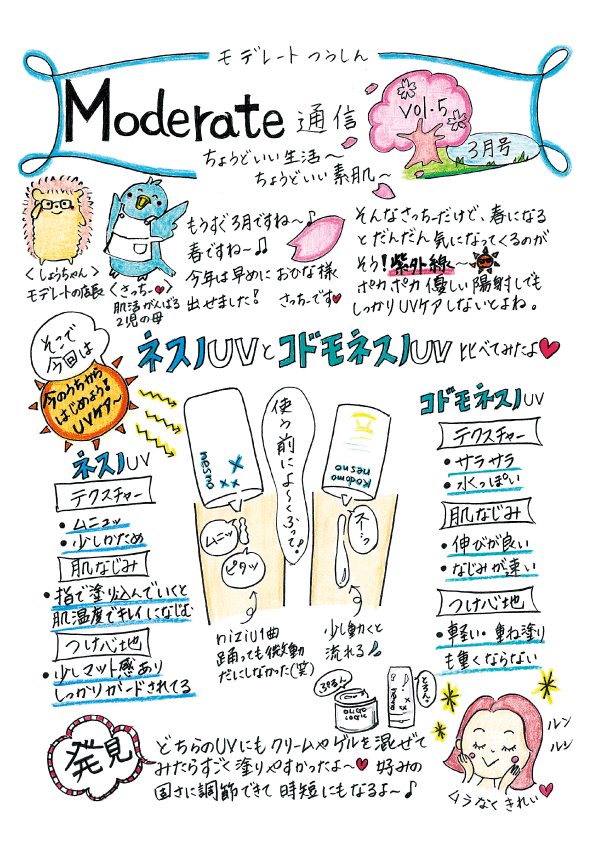 モデレートつうしん
Moderate 通信
vol.5
3月号
ちょうどいい生活〜
ちょうどいい素肌〜
<しょうちゃん>
モデレートの店長
<さっちー♥>
肌活がんばる
2児の母
もうすぐ3月ですね〜♪
春ですね〜♫
今年は早めに
出せました!
おかな様
さっちーです♥
そんなさっちーだけど、春になる
とだんだん気になってくるのが
そう!紫外線〜
ポカポカ優しい陽射しでも
しっかりUVケアしないとよね。
そこで
今回は
今のうちから
はじめよう!
UVケア〜
ネスノUVとコドモネスノUV比べてみたよ♥
ネスノUV
テクスチャー
・ムニュッ
・少しかため
肌なじみ
・指で塗り込んでいくと
肌温度でキレイになじむ
つけ心地
・少しマット感あり
しっかりガードされてる
nesno
使う前によ〜くふって!
Kodomo
nesno
ムニッ
ピタッ
niziU1曲
踊っても微動
だにしなかった(笑)
少し動くと
流れる
コドモネスノUV
テクスチャー
・サラサラ
・水っぽい
肌なじみ
・伸びが良い
・なじみが速い
つけ心地
・軽い・重ね塗り
も重くならない
ぷるん
OLIGO
LOGIC
発見
どちらのUVにもクリームやゲルを混ぜて
みたらすごく塗りやすかったよ〜♥ 好みの
固さに調節できて 時短にもなるよ〜♪
ルン
ルン
ムラなくきれい♥